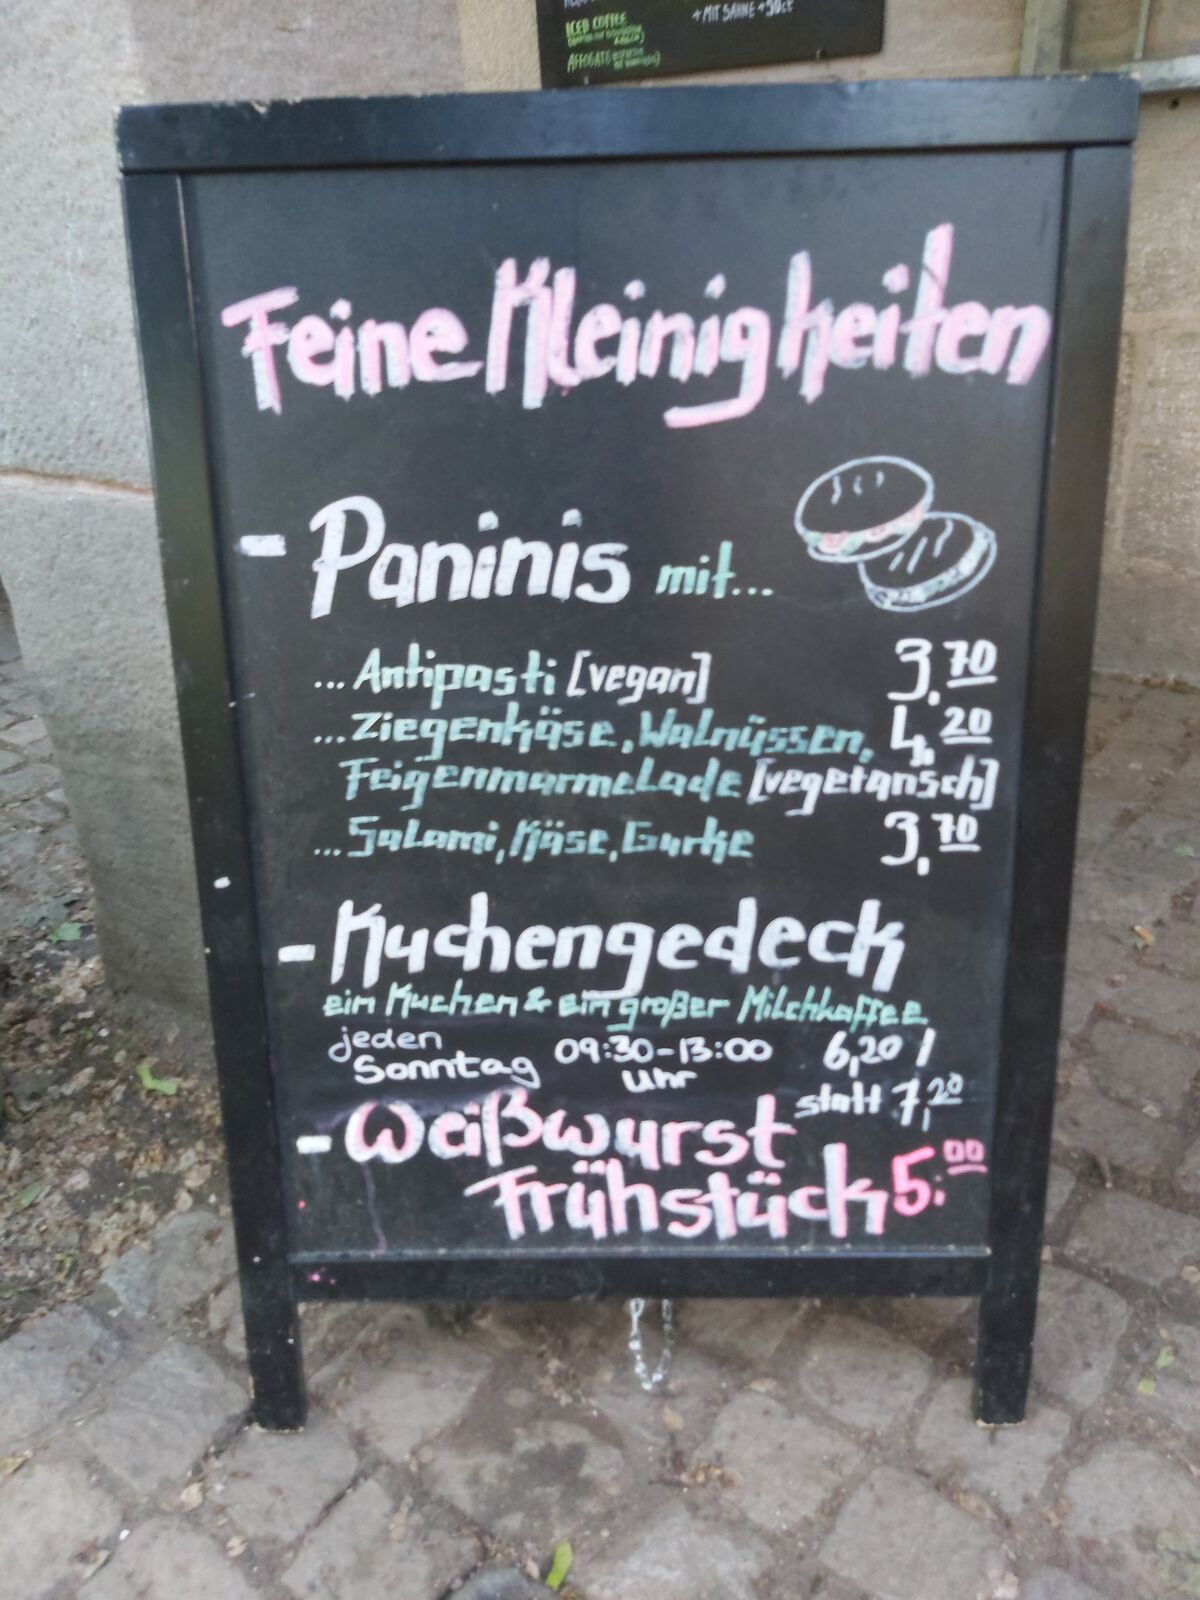 + MIT SAHNE +50ct
ICED COFFEE
AFFOGATO
Feine Kleinigkeiten
- Paninis mit...
... Antipasti [vegan] 3,70
... Ziegenkäse, Walnüssen, 4,20
Feigenmarmelade [vegetarisch]
... Salami, Käse, Gurke 3,70
- Kuchengedeck
ein Kuchen & ein großer Milchkaffee
jeden Sonntag 09:30-13:00 Uhr 6,20 /
statt 7,20
- Weißwurst
Frühstück 5,00